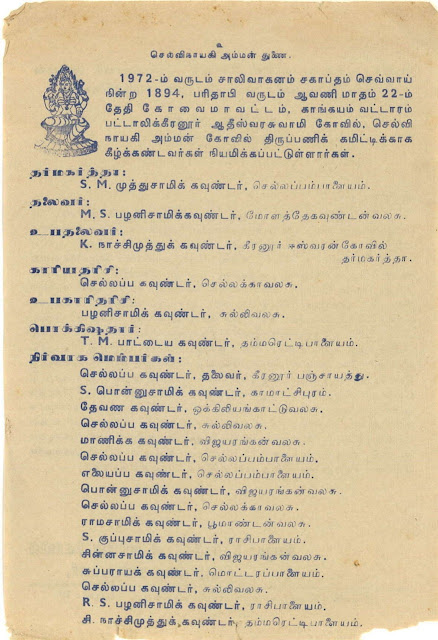 உ
செல்விநாயகி அம்மன் துணை.
1972-ம் வருடம் சாலிவாகனம் சகாப்தம் செவ்வாய்
நின்ற 1894, பரிதாபி வருடம் ஆவணி மாதம் 22-ம்
தேதி கோவைமாவட்டம், காங்கயம் வட்டாரம்
பட்டாலிக்கீரனூர் ஆதீஸ்வரசுவாமி கோவில், செல்வி
நாயகி அம்மன் கோவில் திருப்பணிக் கமிட்டிக்காக
கீழ்க்கண்டவர்கள் நியமிக்கப்பட்டுள்ளார்கள்.
தர்மகர்த்தா:
S. M. முத்துசாமிக் கவுண்டர், செல்லப்பம்பாளையம்.
தலைவர்:
M. S. பழனிசாமிக்கவுண்டர், மோளத்தேகவுண்டன்வலசு.
உபதலைவர்:
K. நாச்சிமுத்துக் கவுண்டர், கீரனூர் ஈஸ்வரன்கோவில்
தர்மகர்த்தா.
காரியதரிசி:
செல்லப்ப கவுண்டர், செல்லக்காவலசு.
உபகாரிதரிசி:
பழனிசாமிக் கவுண்டர், சுல்லிவலசு.
பொக்கிஷதார்:
T. M. பாட்டைய கவுண்டர், தம்மரெட்டிபாளையம்.
நிர்வாகமெம்பர்கள்:
செல்லப்ப கவுண்டர், தலைவர், கீரனூர் பஞ்சாயத்து.
S. பொன்னுசாமிக் கவுண்டர், காமாட்சிபுரம்.
தேவண கவுண்டர், ஒக்கிலியங்காட்டுவலசு.
செல்லப்ப கவுண்டர், சுல்லிவலசு.
மாணிக்க கவுண்டர், விஜயரங்கன்வலசு.
செல்லப்ப கவுண்டர், செல்லப்பம்பாளையம்.
எலையப்ப கவுண்டர், செல்லப்பம்பாளையம்.
பொன்னுசாமிக் கவுண்டர், விஜயரங்கன்வலசு.
செல்லப்ப கவுண்டர், செல்லக்காவலசு.
ராமசாமிக் கவுண்டர், பூமாண்டன்வலசு.
S. குப்புசாமிக் கவுண்டர், ராசிபாளையம்.
சின்னசாமிக் கவுண்டர், விஜயரங்கன்வலசு.
சுப்பராயக் கவுண்டர், மொட்டரப்பாளையம்.
செல்லப்ப கவுண்டர், சுல்லிவலசு.
R. S. பழனிசாமிக் கவுண்டர், ராசிபாளையம்.
சி. நாச்சிமுத்துக் கவுண்டர், தம்மரெட்டிபாளையம்.